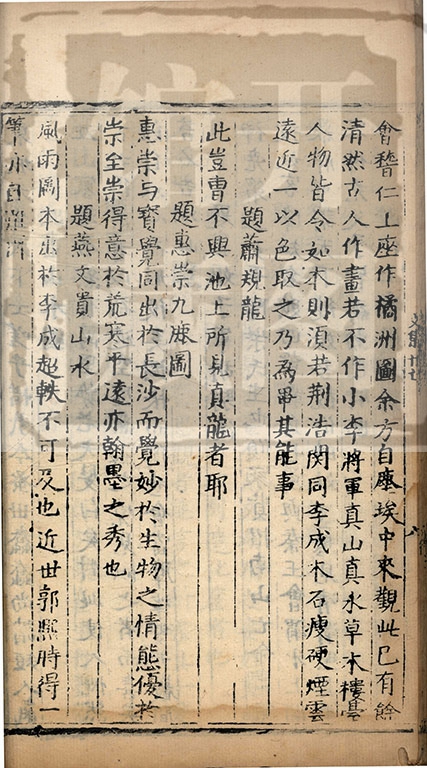 會稽仁上座作橘洲圖余方自塵埃中來觀此已有餘
清然古人作畫若不作小李將軍真山真水草木樓臺
人物皆令如本則湏若荆浩関同李成木石瘦硬煙雲
遠近一以色取之乃爲畢其能事
題蕭規龍
此豈曹不興池上所見真龍者耶
題惠崇九鹿圖
惠崇与寳覺同出於長沙而覺妙於生物之情態優於
崇至崇得意於荒寒平遠亦翰墨之秀也
題燕文貴山水
風雨圖本出於李成超軼不可及也近世郭熙時得一
筆亦自難得